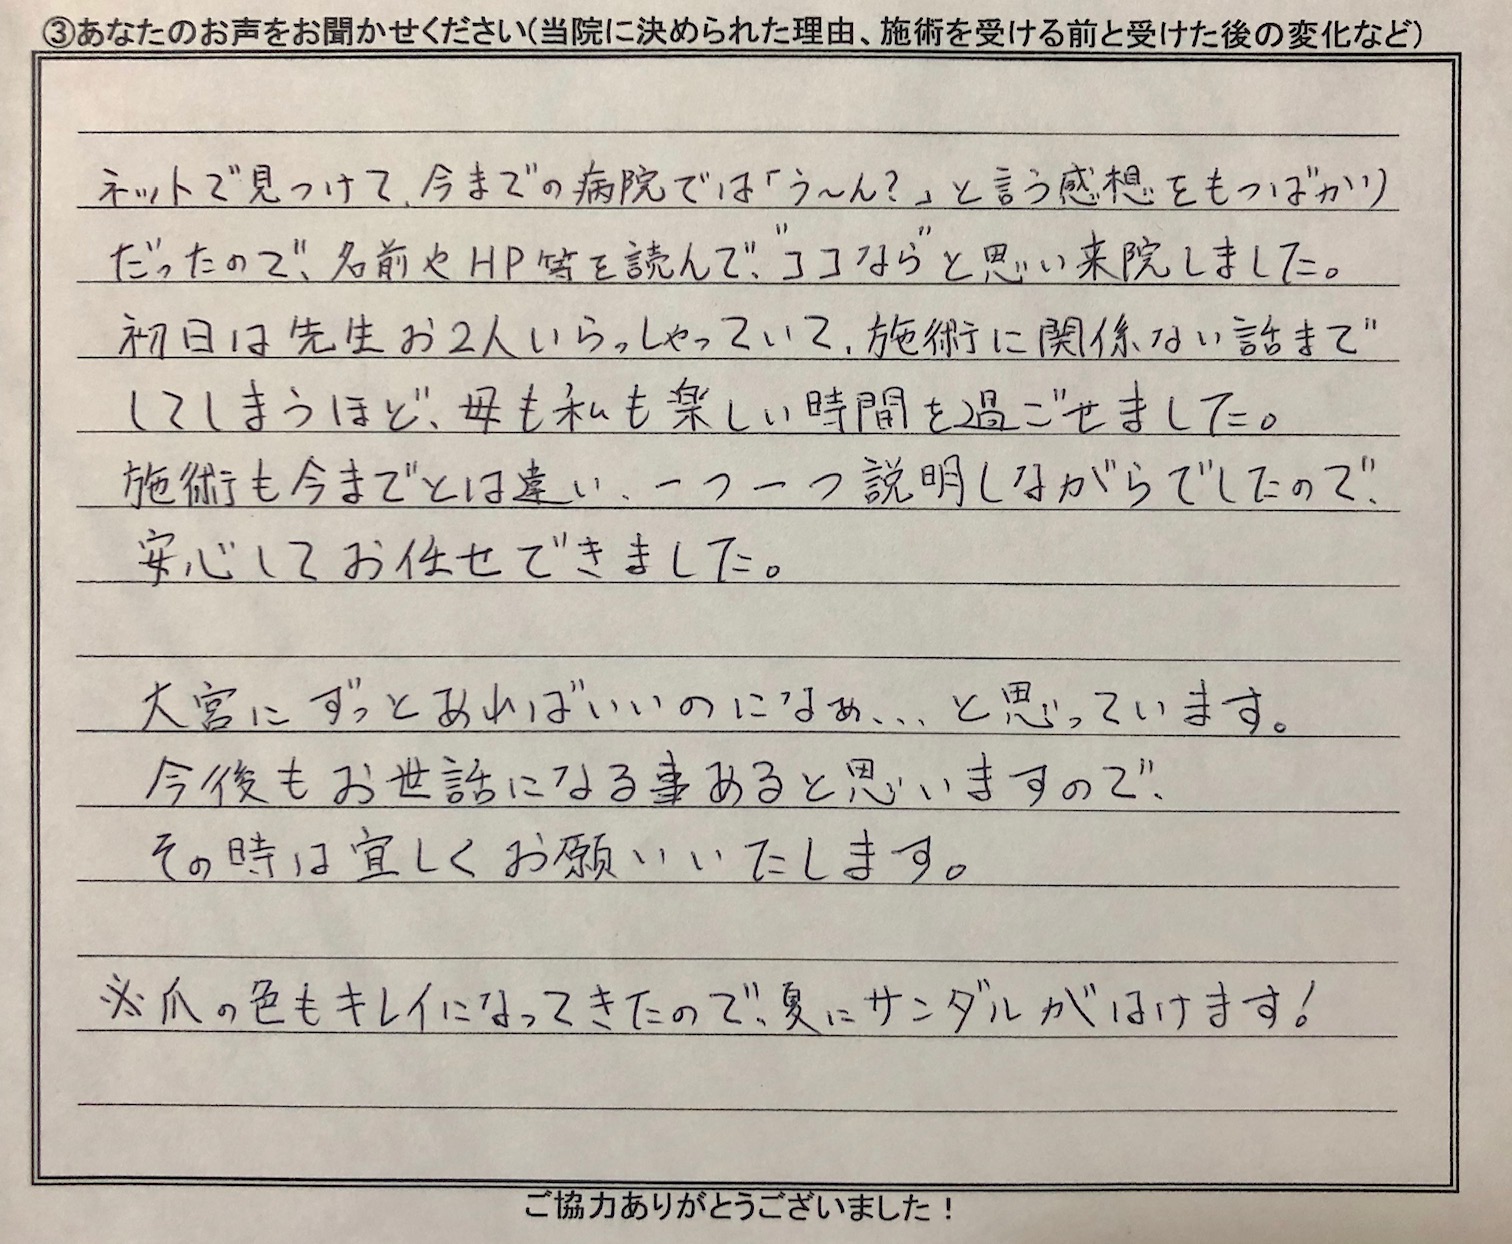 ③あなたのお声をお聞かせください(当院に決められた理由、施術を受ける前と受けた後の変化など)
ネットで見つけて、今までの病院では「う〜ん?」と言う感想をもつばかり
だったので、名前やHP等を読んで、"ココなら"と思い来院しました。
初日は先生お2人いらっしゃっていて、施術に関係ない話まで
してしまうほど、母も私も楽しい時間を過ごせました。
施術も今までとは違い、一つ一つ説明しながらでしたので、
安心してお任せできました。
大宮にずっとあればいいのになぁ...と思っています。
今後もお世話になる事あると思いますので、
その時は宜しくお願いいたします。
※爪の色もキレイになってきたので、夏にサンダルがはけます!
ご協力ありがとうございました!